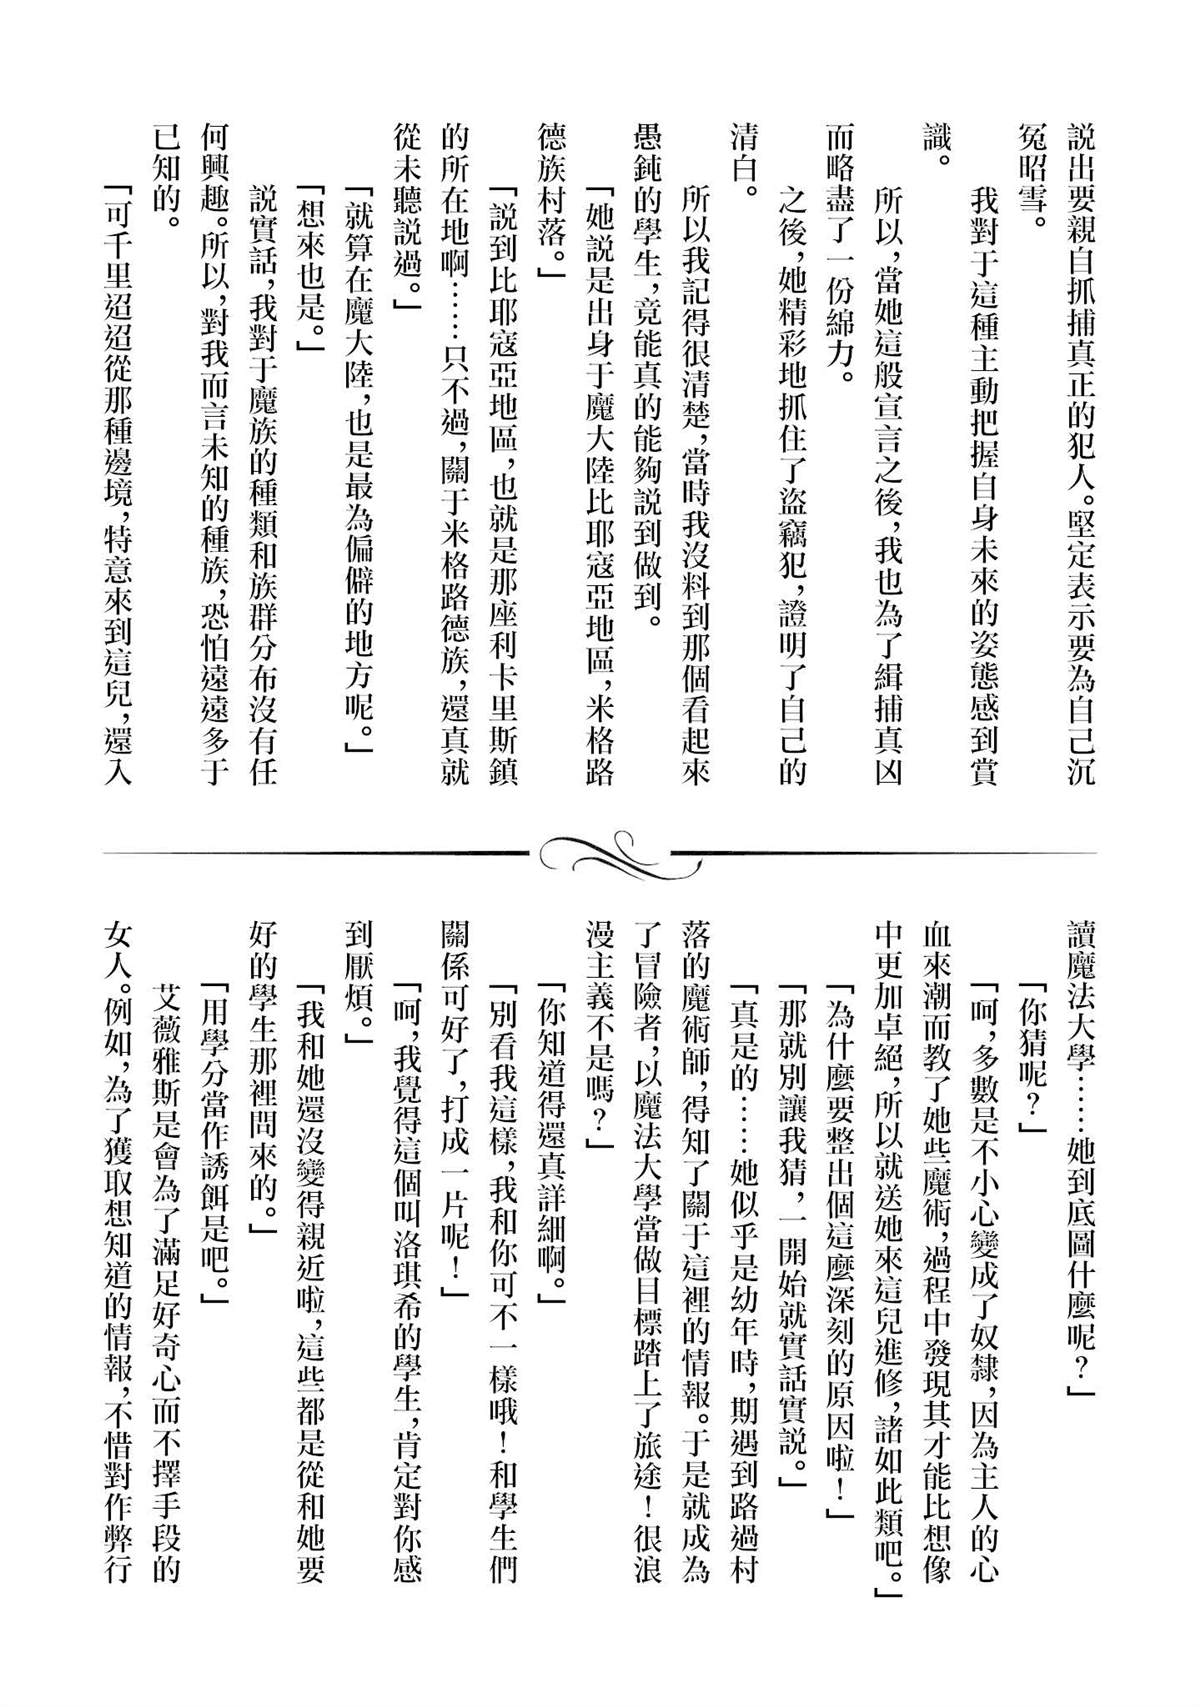 説出要親自抓捕真正的犯人。堅定表示要為自己沉
冤昭雪。
我對于這種主動把握自身未來的姿態感到賞
識。
所以，當她這般宣言之後，我也為了緝捕真凶
而略盡了一份綿力。
之後，她精彩地抓住了盜竊犯，證明了自己的
清白。
所以我記得很清楚，當時我沒料到那個看起來
愚鈍的學生，竟能真的能夠説到做到。
「她説是出身于魔大陸比耶寇亞地區，米格路
德族村落。」
「説到比耶寇亞地區，也就是那座利卡里斯鎮
的所在地啊……只不過，關于米格路德族，還真就
從未聽説過。」
「就算在魔大陸，也是最為偏僻的地方呢。」
「想來也是。」
説實話，我對于魔族的種類和族群分布沒有任
何興趣。所以，對我而言未知的種族，恐怕遠遠多于
已知的。
「可千里迢迢從那種邊境，特意來到這兒，還入
讀魔法大學……她到底圖什麼呢？」
「你猜呢？」
「呵，多數是不小心變成了奴隸，因為主人的心
血來潮而教了她些魔術，過程中發現其才能比想像
中更加卓絕，所以就送她來這兒進修，諸如此類吧。」
「為什麼要整出個這麼深刻的原因啦！」
「那就別讓我猜，一開始就實話實説。」
「真是的……她似乎是幼年時，期遇到路過村
落的魔術師，得知了關于這裡的情報。于是就成為
了冒險者，以魔法大學當做目標踏上了旅途！很浪
漫主義不是嗎？」
「你知道得還真詳細啊。」
「別看我這樣，我和你可不一樣哦！和學生們
關係可好了，打成一片呢！」
「呵，我覺得這個叫洛琪希的學生，肯定對你感
到厭煩。」
「我和她還沒變得親近啦，這些都是從和她要
好的學生那裡問來的。」
「用學分當作誘餌是吧。」
艾薇雅斯是會為了滿足好奇心而不擇手段的
女人。例如，為了獲取想知道的情報，不惜對作弊行